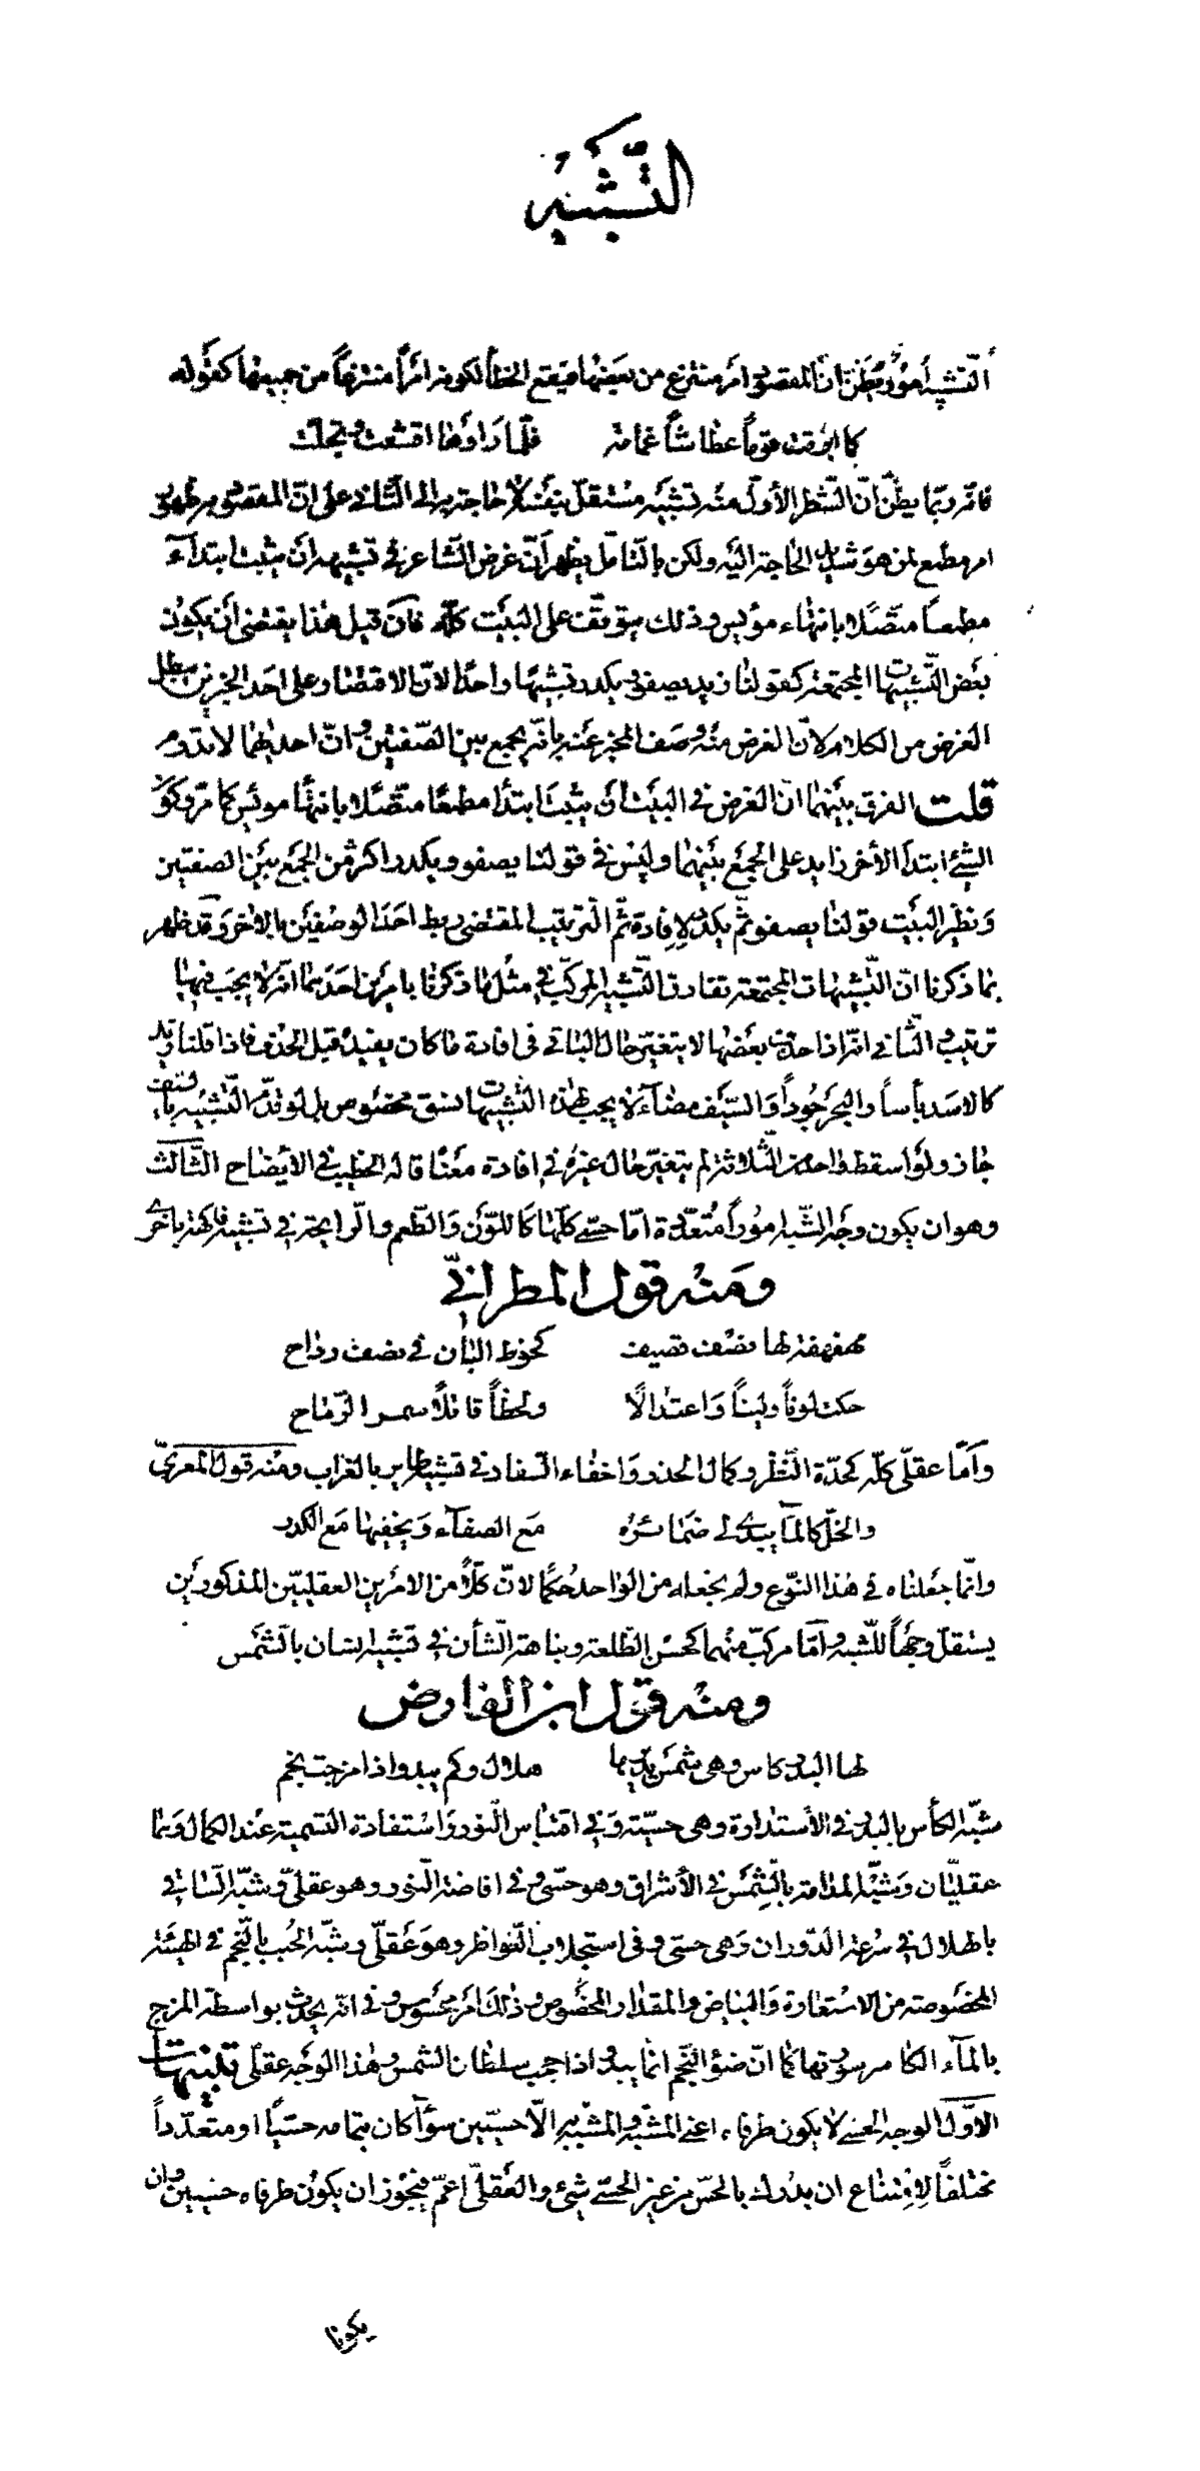 التشبيه
التشبيه أمور يظن ان المقصود امر منتزع من بعضها فيقع الخطأ لكونه امرًا منتزعًا من جميعها كقوله
كما ابرقت قوماً عطاشاً غمامة فلما رأوها اقشعت وتجلت
فانه ربما يظن انّ الشطر الأول منه تشبيه مستقل بنفسه لا حاجة به الى الثاني على انّ المقصود به ظهور
امر مطمع لمن هو شديد الحاجة اليه ولكن بالتأمل يظهر أنّ غرض الشاعر في تشبيهه ان يثبت ابتدآء
مطمعاً متصلا بانتهاء مؤيس وذلك يتوقف على البيت كله فان قيل هذا يقتضى أن يكون
بعض التشبيهات المجتمعة كقولنا زيد يصفو ويكدر تشبيهًا واحدًا لانّ الاقتصار على احد الخبرين يبطل
الغرض من الكلام لانّ الغرض منه وصف المخبر عنه بانّه يجمع بين الصفتين وانّ احديهما لا تدوم
قلت الفرق بينهما انّ الغرض في البيت أن يثبت ابتدأ مطمعًا متصلا بانتهاء موئس كما مرّ وكون
الشيء ابتدأ لأخر زايد على الجمع بينهما وليس في قولنا يصفو ويكدر اكثر من الجمع بين الصفتين
ونظير البيت قولنا يصفو ثم يكدر لافادة ثمّ الترتيب المقتضى ربط احد الوصفين بالاخر وقد ظهر
بما ذكرنا انّ التشبيهات المجتمعة تفارق التشبيه المركب في مثل ما ذكرنا بامرين احدهما انّه لا يجب فيها
ترتيب والثاني انّه اذا حذف بعضها لا يتغير حال الباقي في افادة ما كان يفيده قبل الحذف فاذا قلنا زيد
كالاسد بأساً والبحر جوداً والسيف مضآء لا يجب لهذه التشبيهات نسق مخصوص بل لو قدّم التشبيه بالسيف
جاز ولو اسقط واحد من الثلاثة لم يتغير حال غيره في افادة معناه قاله الخطيب في الايضاح الثالث
وهو ان يكون وجه الشبه امورًا متعدّدة امّا حسى كلها كاللون والطعم والرايحة في تشبيه فاكهة باخرى
ومنه قول المطراني
مهفهفة لها نصف قصيف كخوط البان في نصف رداح
حكت لوناً وليناً واعتدالًا ولحظاً قاتلًا سمر الرماح
وأمّا عقلى كله كحدّة النظر وكمال الحذر واخفاء السفاد في تشبيه طاير بالغراب ومنه قول المعرّي
والخل كالمآ يبدى لى ضمائره مع الصفآء ويخفيها مع الكدر
وانّما جعلناه في هذا النوع ولم نجعله من الواحد حكمًا لانّ كلًا من الامرين العقليين المذكورين
يستقل وجهًا للشبه وامّا مركب منهما كحسن الطلعة ونباهة الشأن في تشبيه انسان بالشمس
ومنه قول ابن الفارض
لها البدر كاس وهى شمس يديرها هلال وكم يبدو اذا مزجت نجم
شبّه الكأس بالبدر في الأستدارة وهى حسيّة وفى اقتباس النور واستفادة التسمية عند الكمال وهما
عقليّان وشبّه المدامة بالشمس في الأشراق وهو حسّى وفى افاضة النور وهو عقلىّ وشبّه الساقي
بالهلال في سرعة الدوران وهى حسى وفى استجلاب النواظر وهو عقلىّ وشبّه الحبب بالنجم في الهيئة
المخصوصة من الاستدارة والبياض والمقدار المخصوص وذلك امر محسوس وفى انه يحدث بواسطة المزج
بالمآء الكاسر سورتها كما انّ ضوء النجم انما يبدو اذا حجب سلطان الشمس وهذا الوجه عقلى تنبيهات
الاوّل الوجه الحسى لا يكون طرفاه اعنى المشبّه والمشبّه به الّا حسيّين سوآء كان بتمامه حسيًّا او متعدّداً
مختلفاً لامتناع ان يدرك بالحسّ من غير الحسى شيء والعقلىّ اعمّ فيجوز ان يكون طرفاه حسيين وان
يكونا